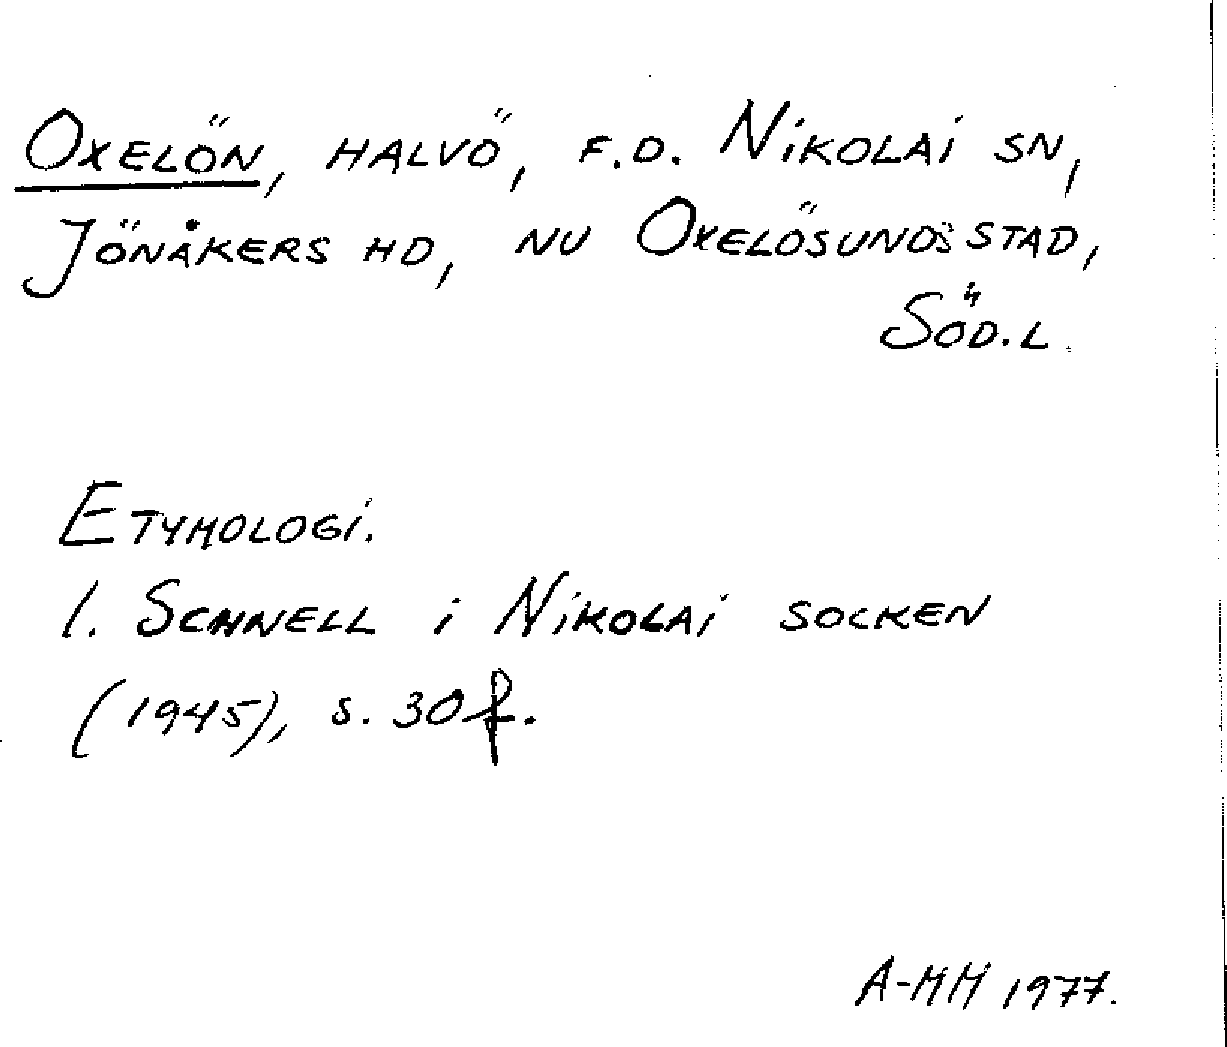 Oxelön, halvö, f.d. Nikolai sn,
Jönåkers hd, nu Oxelösunds stad,
Söd.l.
Etymologi.
I. Schnell i Nikolai socken
(1945), s. 30 f.
A-MM 1977.